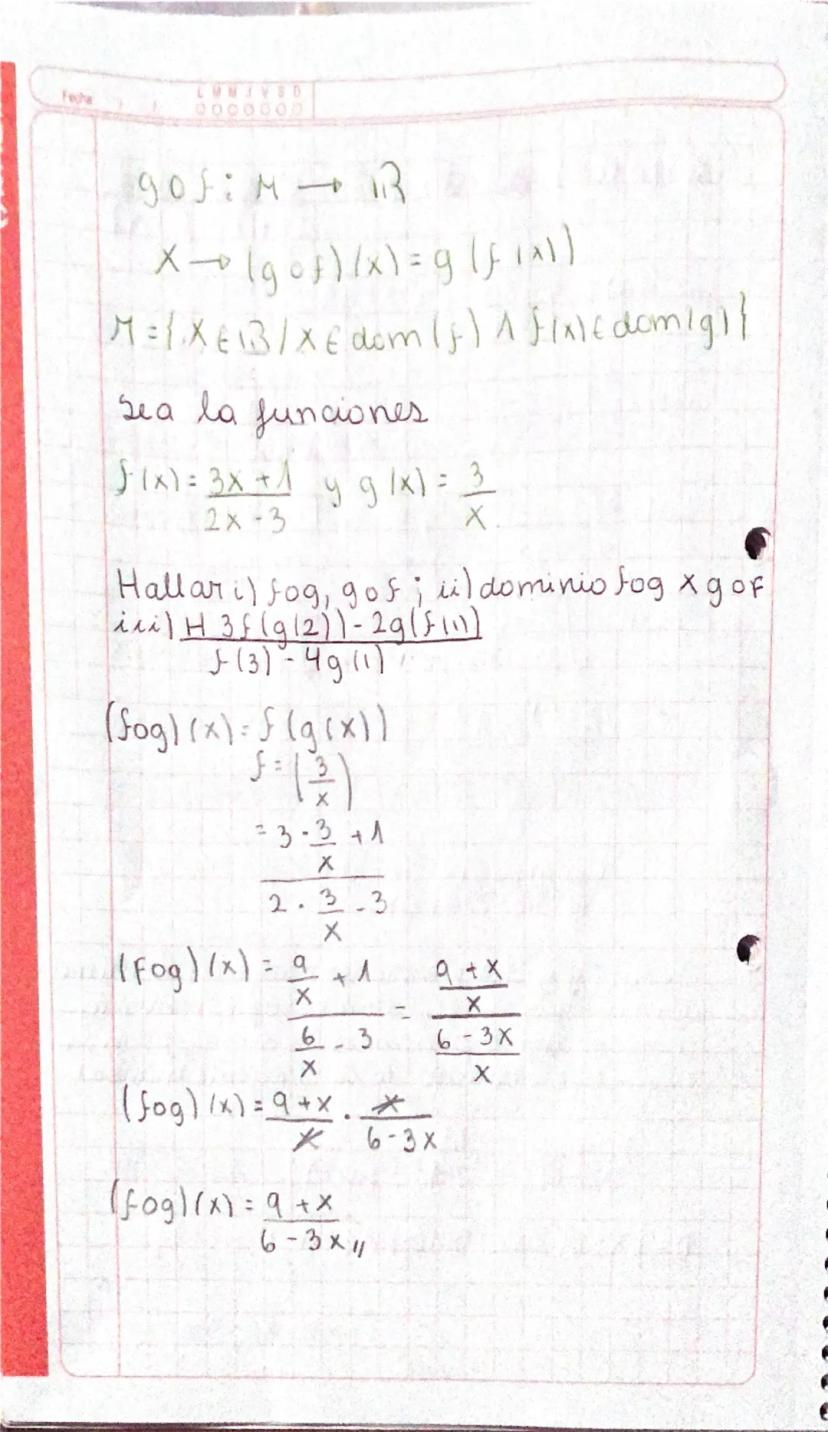 Fecha
L M M J V S D
gof: M → IR
x → (gof)(x) = g(f(x))
M = {x ∈ IR / x ∈ dom(f) ∧ f(x) ∈ dom(g)}
Sea la funciones
f(x) = (3x + 1)/(2x - 3) y g(x) = 3/x
Hallar i) fog, gof ; ii) dominio fog x gof
iii) (H 3f(g(2)) - 2g(f(1))/(f(3) - 4g(1)
(fog)(x) = f(g(x))
f = (3/x)
= (3 · 3/x + 1)/(2 · 3/x - 3)
(fog)(x) = (9/x + 1)/(6/x - 3) = ((9 + x)/x)/((6 - 3x)/x)
(fog)(x) = (9 + x)/x · x/(6 - 3x)
(fog)(x) = (9 + x)/(6 - 3x)//